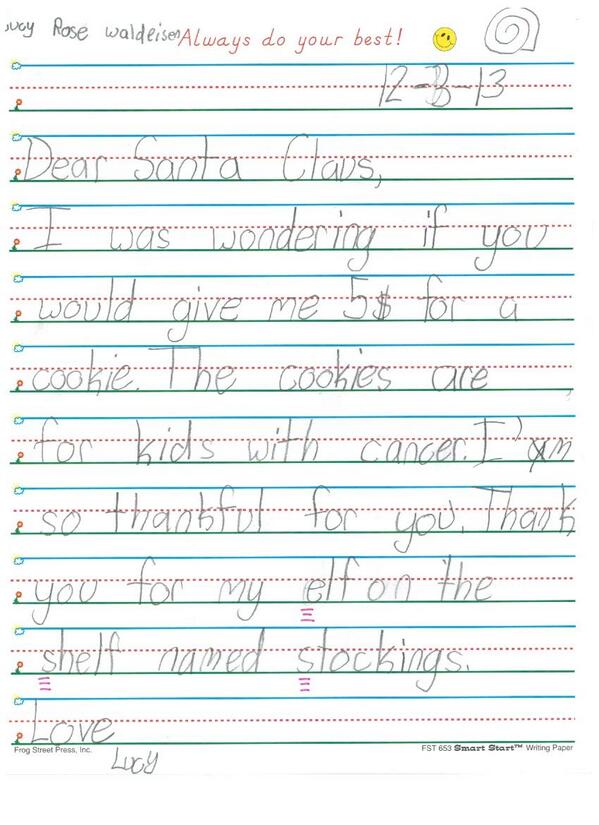 Lucy Rose waldeisen Always do your best!
12-3-13
Dear Santa Claus,
I was wondering if you
would give me 5$ for a
cookie. The cookies are
for kids with cancer. I'm
so thankful for you. Thank
you for my elf on the
shelf named stockings.
Love
Frog Street Press, Inc. FST 653 Smart Start™ Writing Paper
Lucy